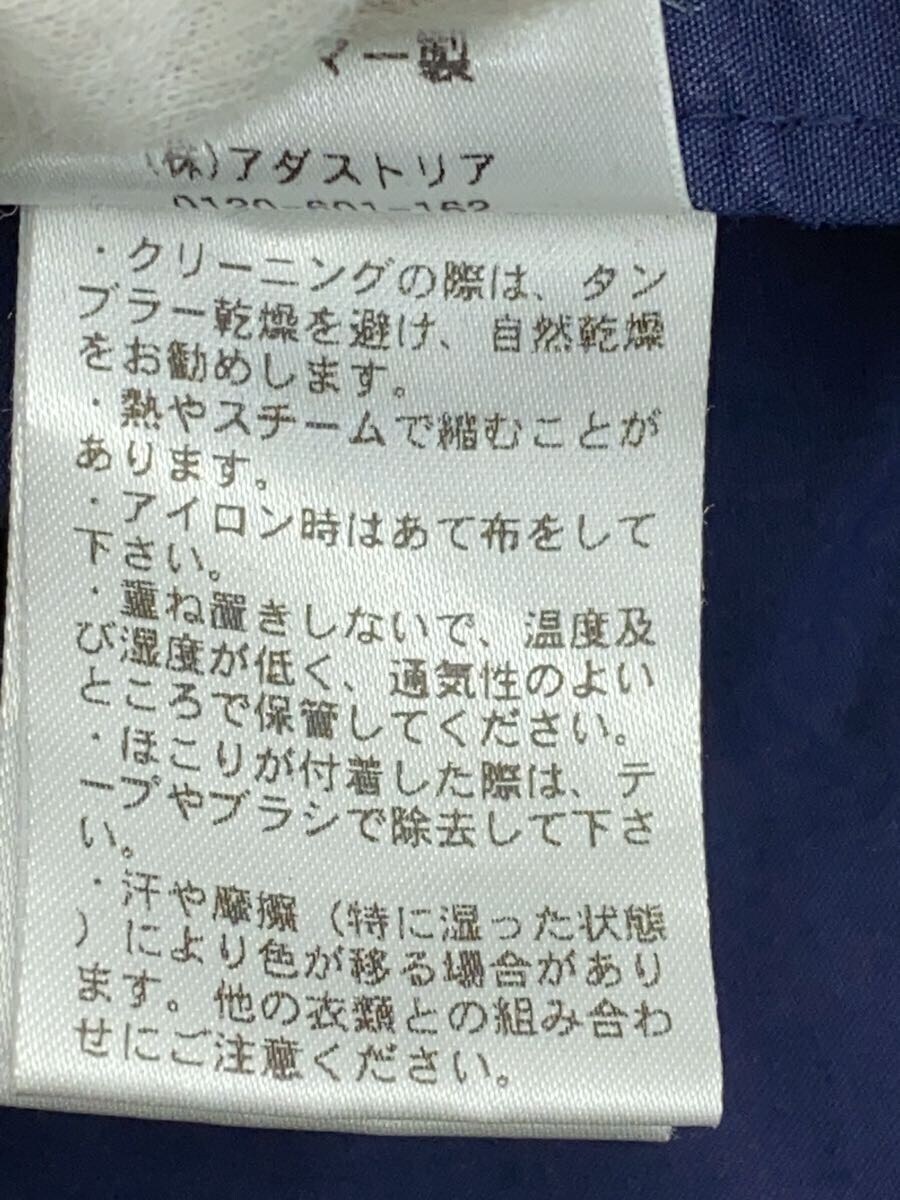 マー製
(株)アダストリア
0120-601-162
・クリーニングの際は、タン
ブラー乾燥を避け、自然乾燥
をお勧めします。
・熱やスチームで縮むことが
あります。
・アイロン時はあて布をして
下さい。
・重ね置きしないで、温度及
び湿度が低く、通気性のよい
ところで保管してください。
・ほこりが付着した際は、テ
ープやブラシで除去して下さ
い。
・汗や摩擦(特に湿った状態
)により色が移る場合があり
ます。他の衣類との組み合わ
せにご注意ください。